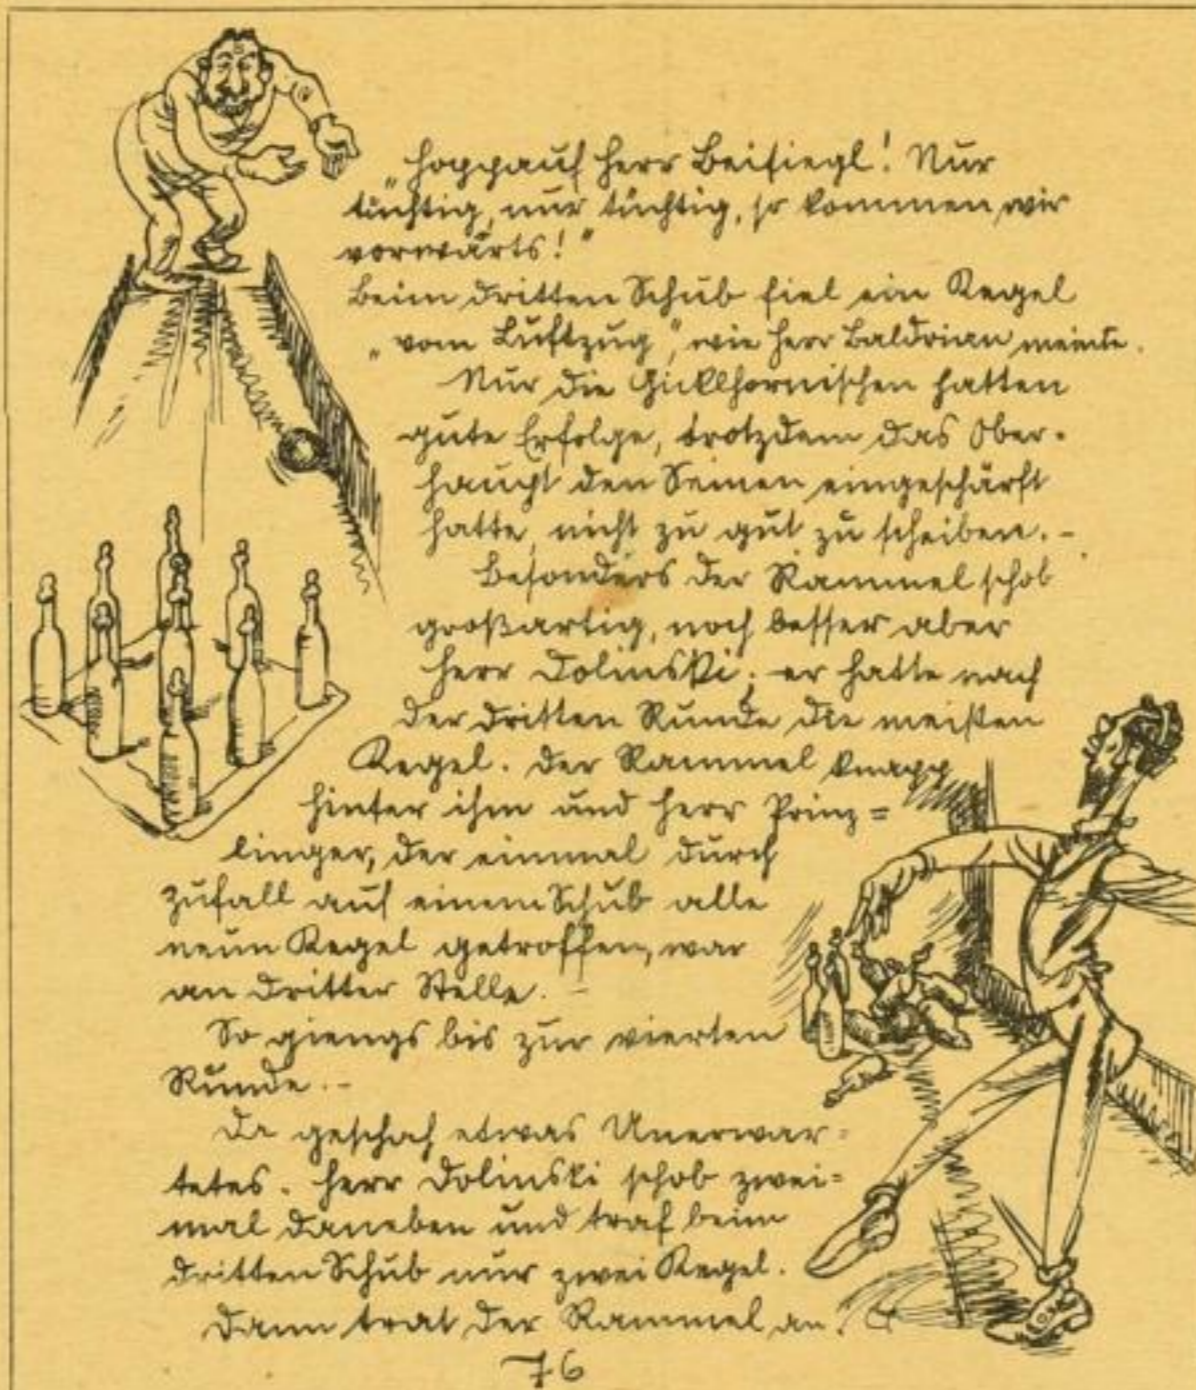 „Hoppauf Herr Beisiegl! Nur
tüchtig, nur tüchtig, so kommen wir
vorwärts!“
Beim dritten Schub fiel ein Kegel
„vom Luftzug“, wie Herr Baldrian meinte.
Nur die Gicklhornischen hatten
gute Erfolge, trotzdem das Ober-
haupt den Seinen eingeschärft
hatte, nicht zu gut zu scheiben.-
Besonders der Rammel schob
großartig, noch besser aber
Herr Dolinski; er hatte nach
der dritten Runde die meisten
Kegel. Der Rammel knapp
hinter ihm und Herr Prinz=
linger, der einmal durch
Zufall auf einem Schub alle
neun Kegel getroffen, war
an dritter Stelle. -
So giengs bis zur vierten
Runde.-
Da geschah etwas Unerwar=
tetes. Herr Dolinski schob zwei=
mal daneben und traf beim
dritten Schub nur zwei Kegel.
Dann trat der Rammel an.
76